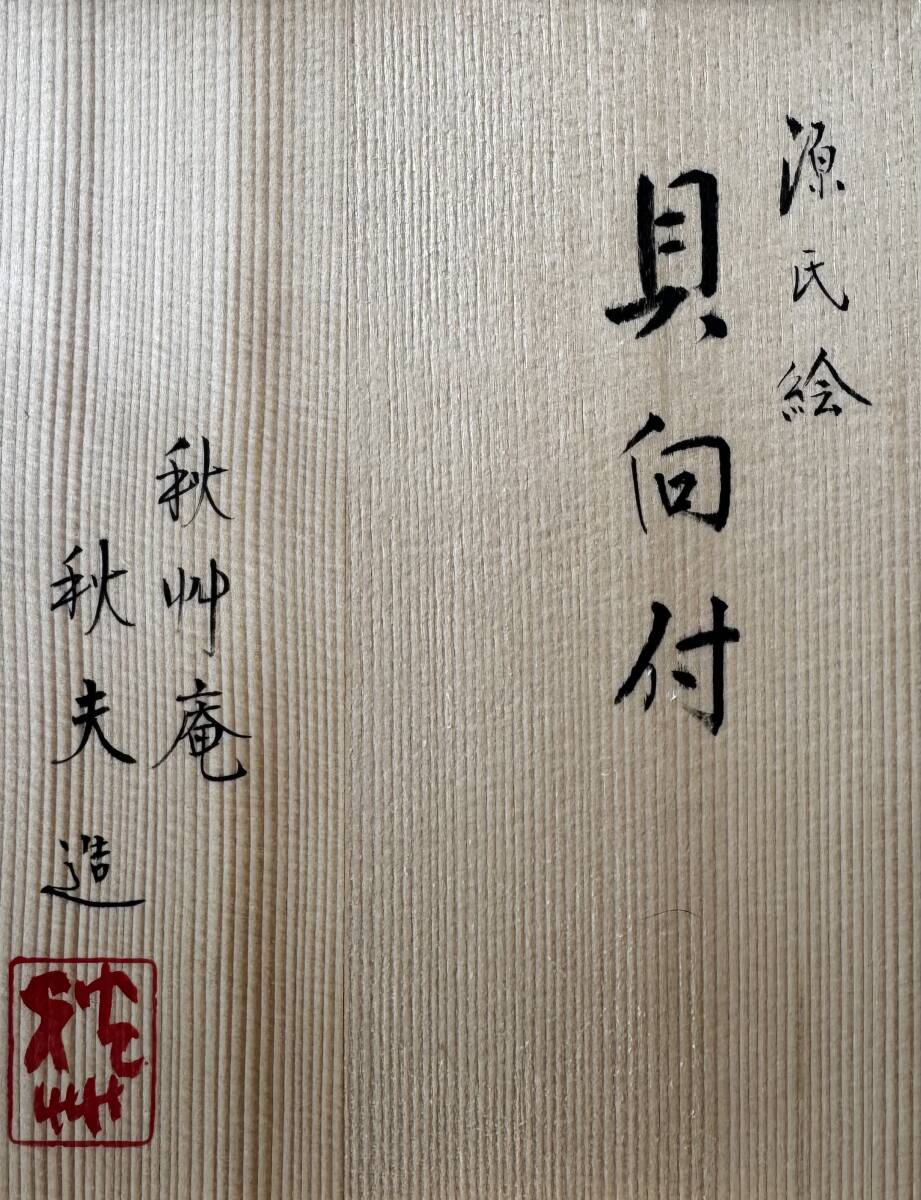 源氏絵
貝向付
秋艸庵
秋夫造